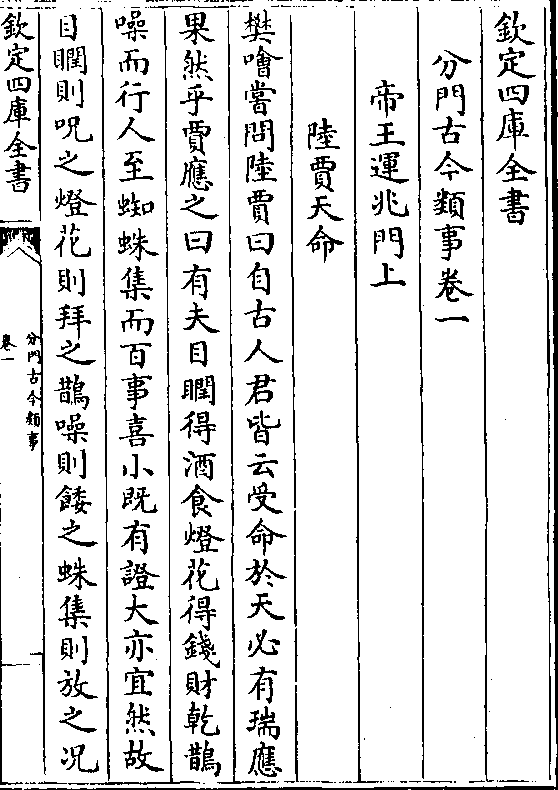 欽定四庫全書
分門古今類事卷一
帝王運兆門上
陸賈天命
樊噲嘗問陸賈曰自古人君皆云受命於天必有瑞應
果然乎賈應之曰有夫目瞤得酒食燈花得錢財乾鵲
噪而行人至蜘蛛集而百事喜小既有證大亦宜然故
目瞤則呪之燈花則拜之鵲噪則餧之蛛集則放之况
欽定四庫全書
分門古今類事
卷一